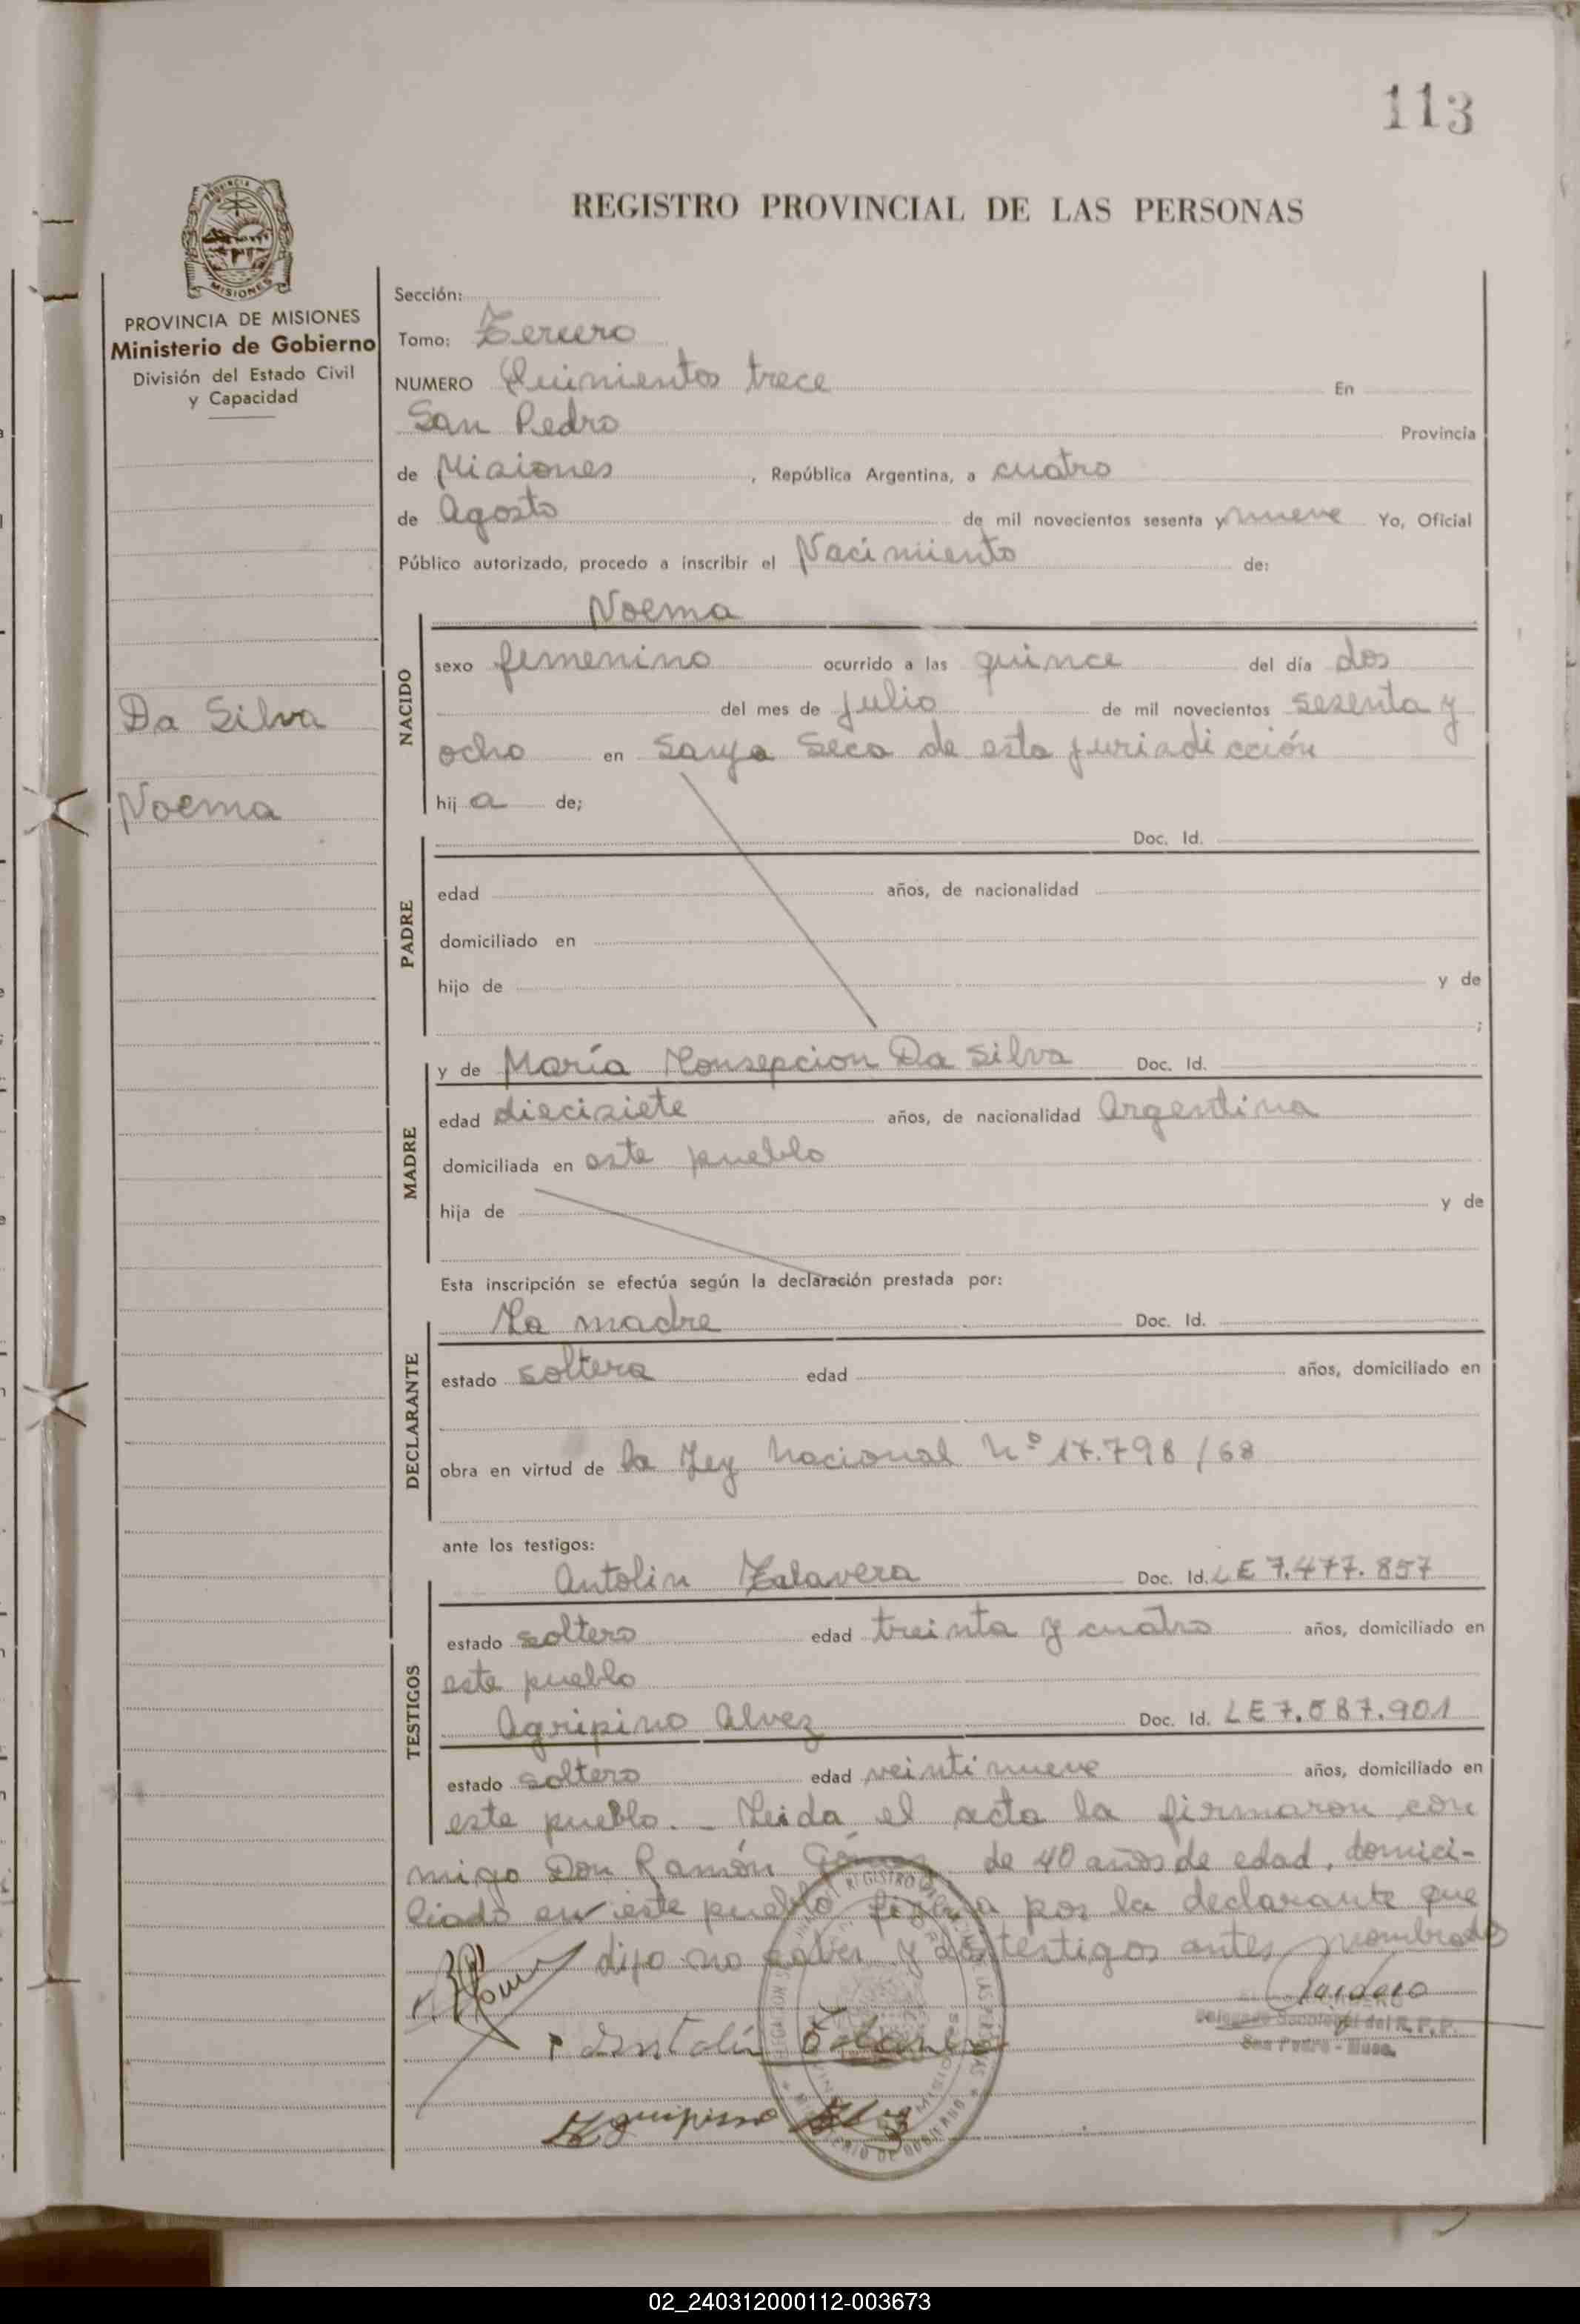 113
REGISTRO PROVINCIAL DE LAS PERSONAS
PROVINCIA DE MISIONES
Ministerio de Gobierno
División del Estado Civil
y Capacidad
Da Silva
Noema
Sección:
Tomo: Tercero
NUMERO Quinientos trece En
San Pedro Provincia
de Misiones, República Argentina, a cuatro
de Agosto de mil novecientos sesenta y nueve Yo, Oficial
Público autorizado, procedo a inscribir el Nacimiento de:
Noema
NACIDO
sexo femenino ocurrido a las quince del día dos
del mes de julio de mil novecientos sesenta y
ocho en Sanja Seca de esta jurisdicción
hija de;
PADRE
Doc. Id.
edad años, de nacionalidad
domiciliado en
hijo de y de
;
MADRE
y de María Consepcion Da Silva Doc. Id.
edad diecisiete años, de nacionalidad Argentina
domiciliada en este pueblo
hija de y de
Esta inscripción se efectúa según la declaración prestada por:
DECLARANTE
La madre Doc. Id.
estado soltera edad años, domiciliado en
obra en virtud de la Ley Nacional Nº 17.798/68
ante los testigos:
TESTIGOS
Antolin Talavera Doc. Id. LE 7.477.857
estado soltero edad treinta y cuatro años, domiciliado en
este pueblo
Agripino Alvez Doc. Id. LE 7.587.901
estado soltero edad veintinueve años, domiciliado en
este pueblo.- Leida el acta la firmaron con
migo Don Ramón Gómez de 40 años de edad, domici-
liado en este pueblo firma por la declarante que
dijo no saber y dos testigos antes nombrados
Antolín Talavera
Agripino Alvez
Delegado Seccional del R.P.P.
San Pedro - Mnes.
02_240312000112-003673